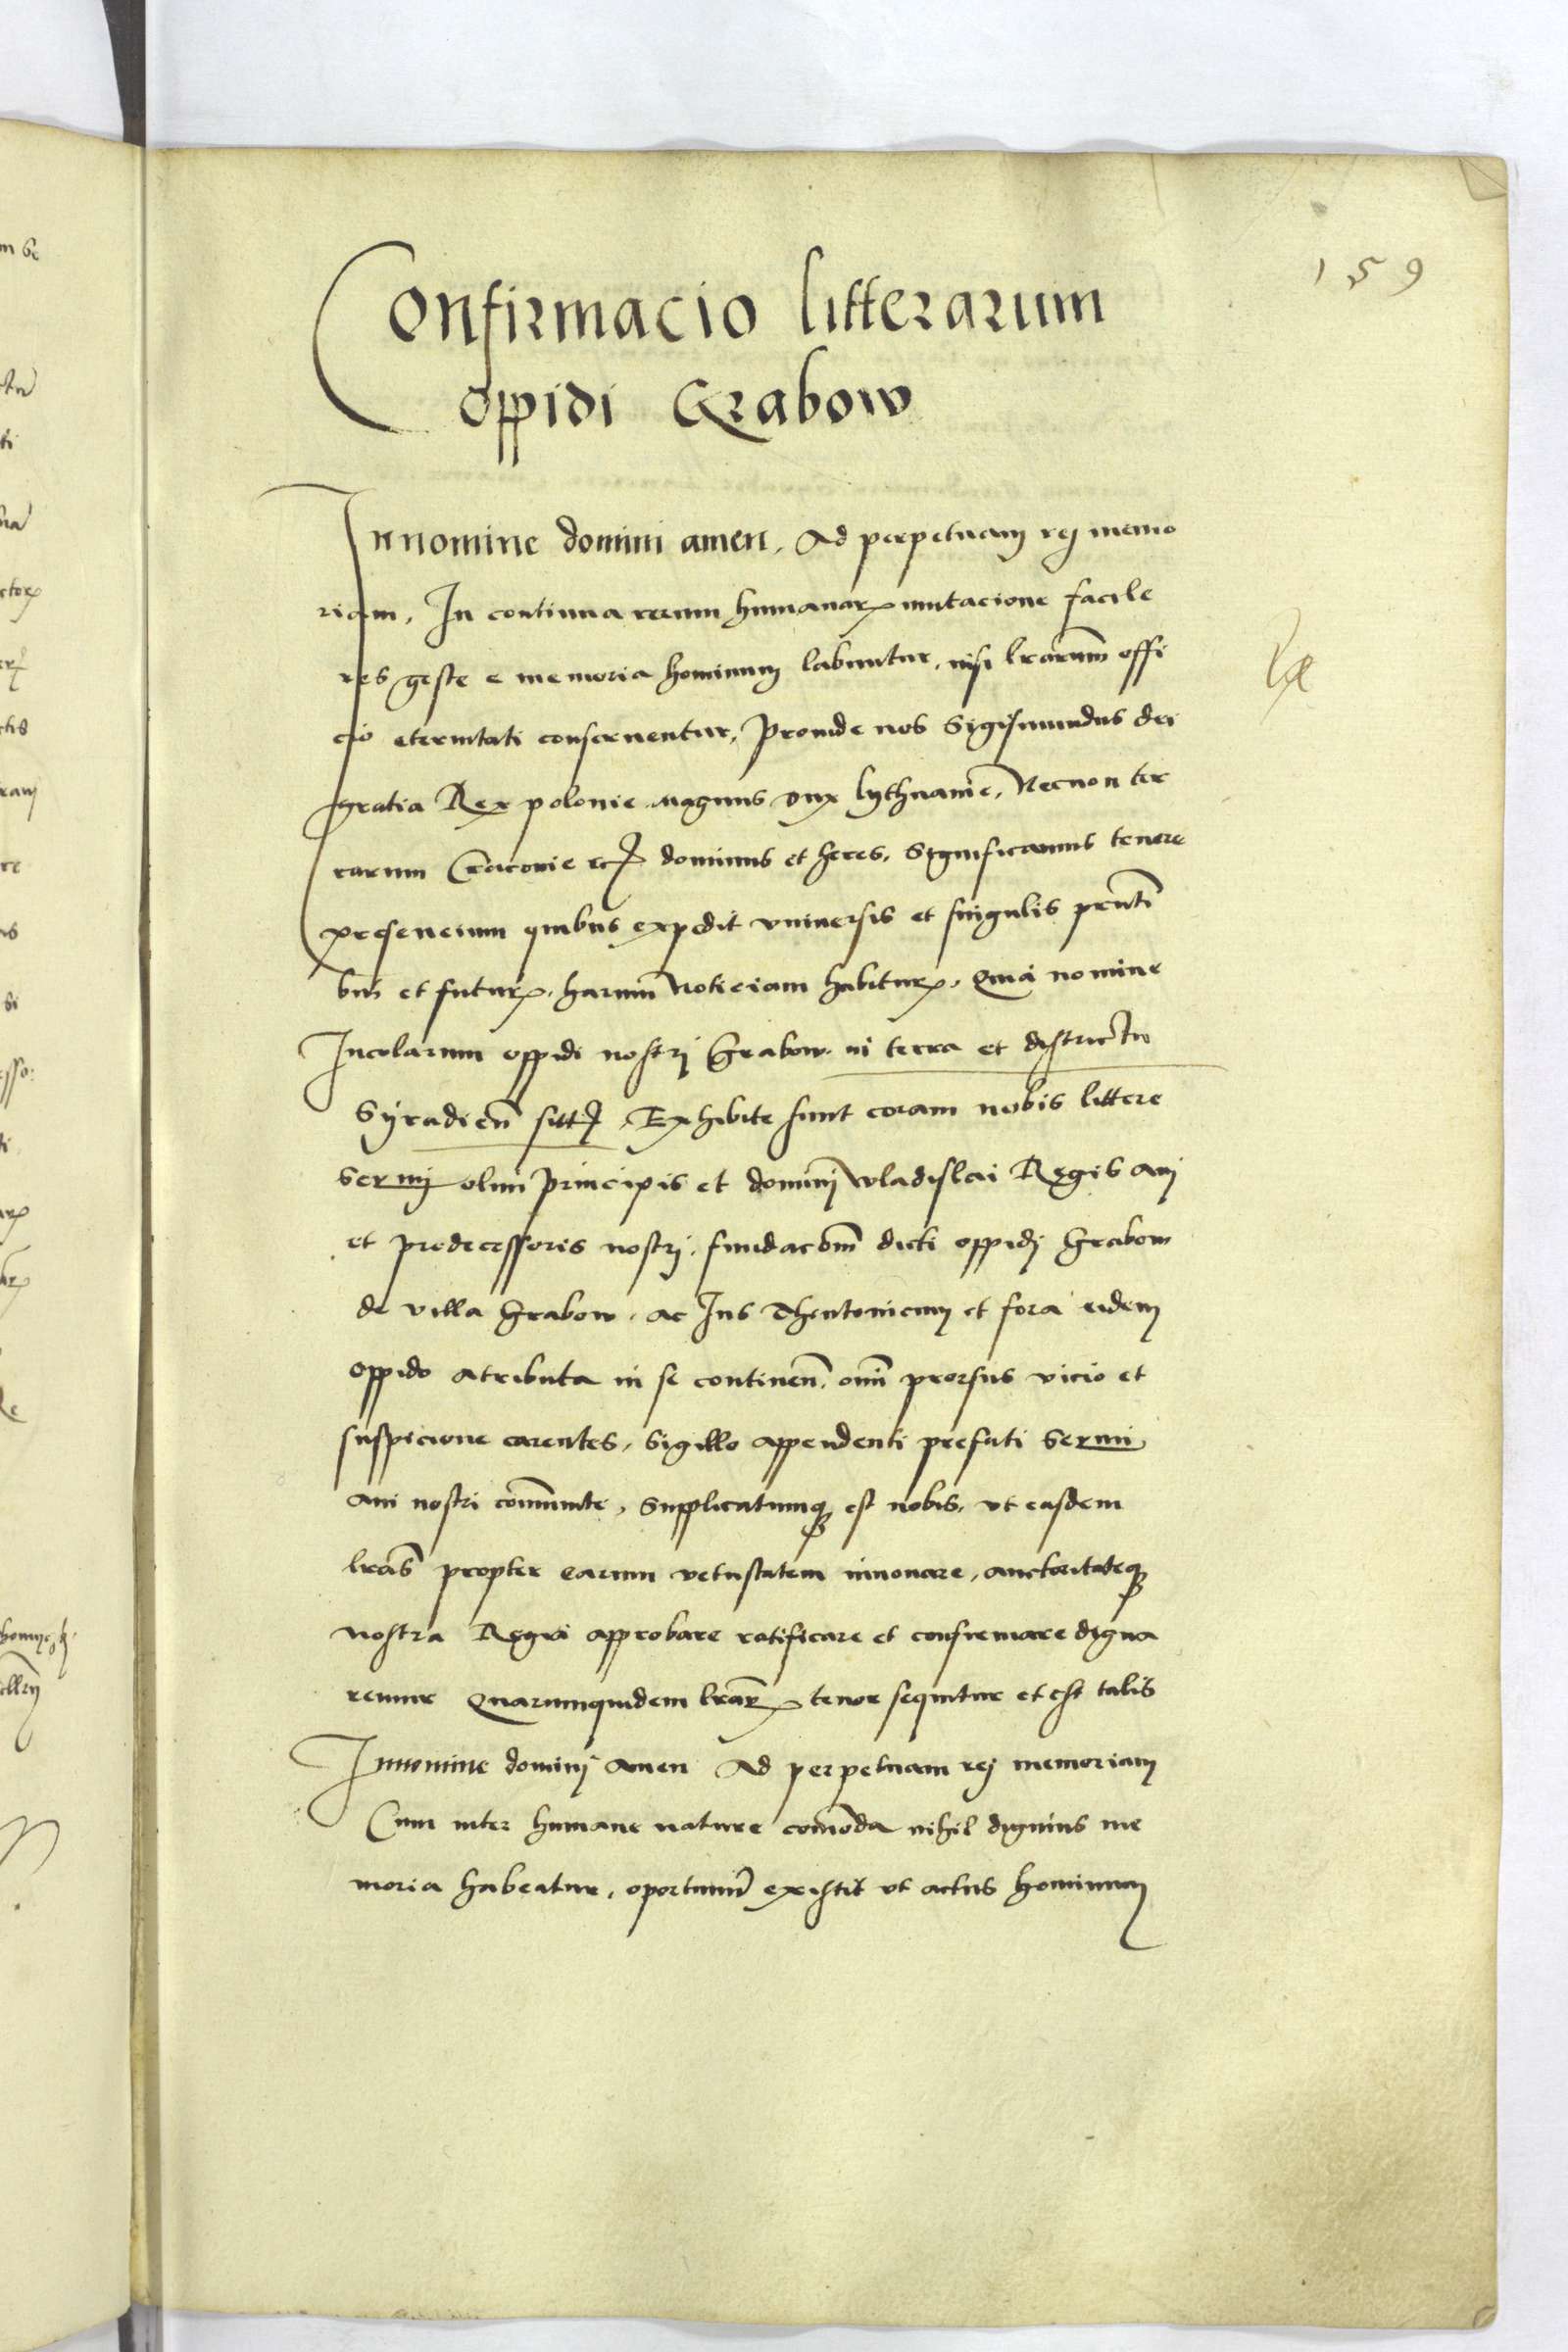 159
Confirmacio litterarum
oppidi Grabow
In nomine domini amen. Ad perpetuam rej memo
riam. In continua rerum humanarꝝ mutacione facile
res geste e memoria hominum labuntur, nisi lrarum offi
cio eternitati conserventur. Proinde nos Sigismundus dei
gratia Rex polonie. magnus dux lythuanie. Necnon ter
rarum Cracovie etc dominus et heres. Significamus tenore
presencium quibus expedit universis et singulis pnti
bus et futurꝝ. harum noticiam habiturꝝ. Quia nomine
Incolarum oppidi nostrj Grabow. in terra et districtu
Syradien sitt. Exhibite sunt coram nobis littere
sermj olim principis et dominj wladislai Regis avi
et predecessoris nostrj. fundacom dicti oppidj Grabow
de villa Grabow. ac Jus Theutonicum et fora eidem
oppido atributa in se continen. omi prorsus vicio et
suspicione carentes, Sigillo appendenti prefati Sermi
avi nostri communite, Supplicatumqꝫ est nobis, ut easdem
lras propter earum vetustatem innovare, auctoritateqꝫ
nostra Regia approbare ratificare et confirmare digna
remur Quarumquidem lrarꝝ tenor sequitur et est talis
In nomine dominj Amen Ad perpetuam rej memoriam
Cum inter humane nature comoda nihil dignius me
moria habeatur, oportunu existit ut actus hominum